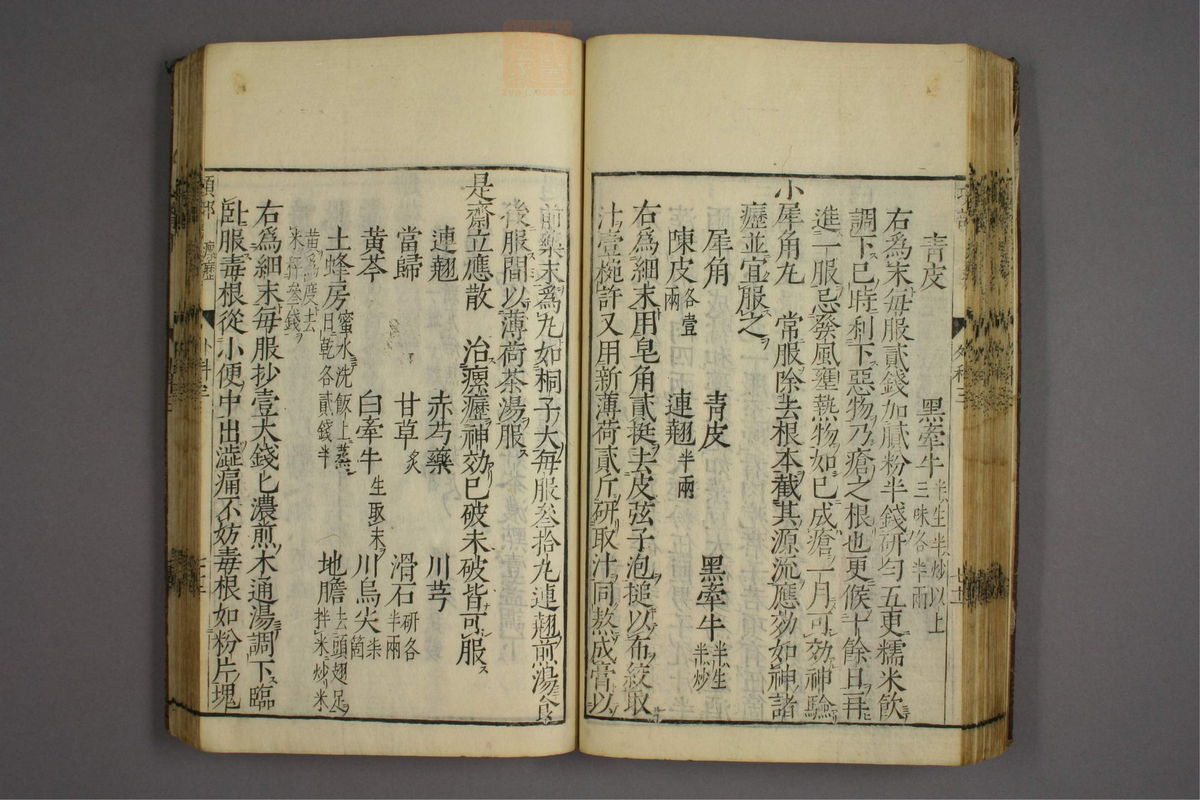 青皮 黑牽牛 半生半炒以上三味各半兩
右爲末毎服貳錢加膩粉半錢研匀五更糯米飲
調下已時利下惡物乃瘡之根也更候十餘日再
進一服忌發風壅熱物如已成瘡一月可効神驗
小犀角丸 常服除去根本截其源流應効如神諸
癧並宜服之
犀角 青皮 黑牽牛 半生半炒
陳皮 各壹兩 連翹 半兩
右爲細末用皂角貳挺去皮弦子泡搥以布絞取
汁壹椀許又用新薄荷貳斤研取汁同熬成膏以
前藥末爲丸如桐子大毎服叁拾丸連翹煎湯食
後服間以薄荷茶湯服
是齋立應散 治瘰癧神効已破未破皆可服
連翹 赤芍藥 川芎
當歸 甘草 炙 滑石 研各半兩
黃芩 白牽牛 生取末 川烏尖 柒箇
土蜂房 蜜水洗飯上蒸日乾各貳錢半 地膽 拌米炒去頭翅足米
黃爲度去米秤叁錢
右爲細末毎服抄壹大錢匕濃煎木通湯調下臨
臥服毒根從小便中出澁痛不妨毒根如粉片塊
項部 瘰癧
外科三